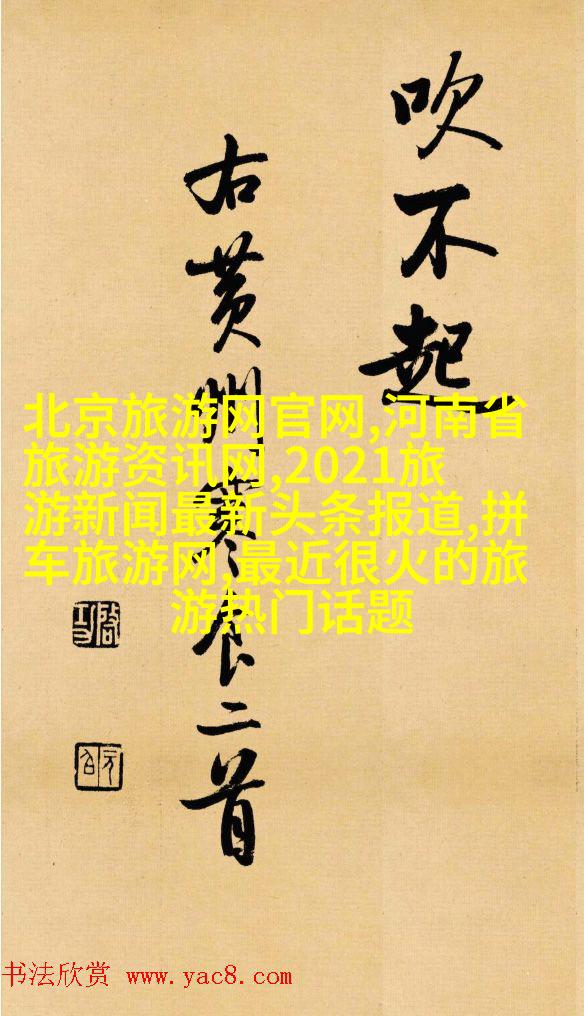 吹不起
右黄州寒食二首
北京旅游网官网,河南省
旅游资讯网,2021旅
游新闻最新头条报道,拼
车旅游网,最近很火的旅
游热门话题
启功
元白
书法欣赏 www.yac8.com